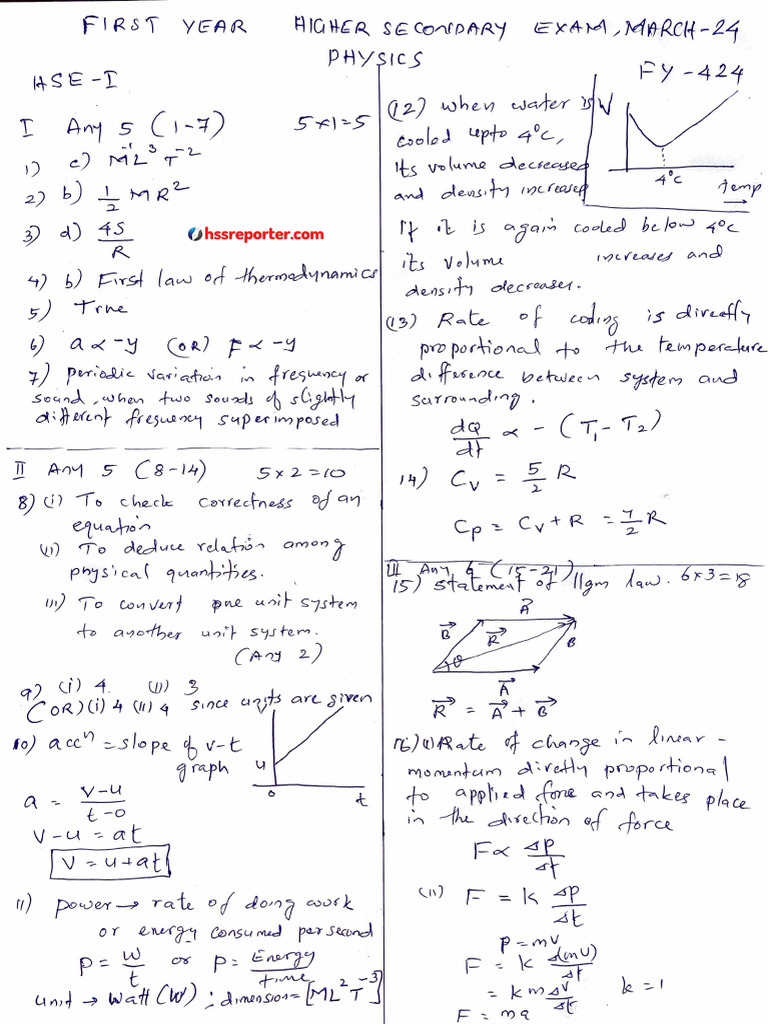 FIRST YEAR HIGHER SECONDARY EXAM, MARCH-24
PHYSICS
HSE-I
FY-424
I Any 5 (1-7) 5×1=5
1) c) M⁻¹L³T⁻²
2) b) 1/2 MR²
3) d) 4S/R
hssreporter.com
4) b) First law of thermodynamics
5) True
6) a ∝ -y (OR) F ∝ -y
7) periodic variation in frequency or
sound, when two sounds of slightly
different frequency superimposed
II Any 5 (8-14) 5×2=10
8) (i) To check correctness of an
equation
(ii) To deduce relation among
physical quantities.
iii) To convert one unit system
to another unit system.
(Any 2)
9) (i) 4 (ii) 3
(OR) (i) 4 (ii) 4 since units are given
10) accⁿ = slope of v-t
graph
u
0 t
a = v-u/t-0
v-u = at
v = u+at
11) power → rate of doing work
or energy consumed per second
P = W/t or P = Energy/time
unit → Watt (W) ; dimension = [ML²T⁻³]
(12) when water is
cooled upto 4°C,
its volume decreased
and density increased
V
4°C
temp
If it is again cooled below 4°C
its volume increases and
density decreases.
(13) Rate of cooling is directly
proportional to the temperature
difference between system and
surrounding.
dQ/dt ∝ - (T₁ - T₂)
14) Cv = 5/2 R
Cp = Cv + R = 7/2 R
III Any 6 (15-21)
15) Statement of llgm law. 6×3=18
A
B R B
θ
A
R = A + B
16) (i) Rate of change in linear -
momentum diretly proportional
to applied force and takes place
in the direction of force
F ∝ Δp/Δt
(ii) F = k Δp/Δt
p = mv
F = k Δ(mv)/Δt
= k m Δv/Δt k = 1
F = ma